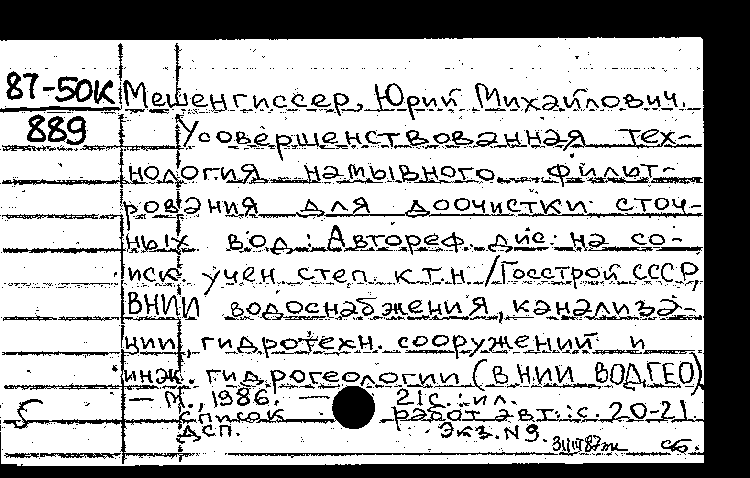 87-50К Мешенгиссер, Юрий Михайлович.
889 Усовершенствованная тех-
нология намывного фильт-
рования для доочистки сточ-
ных вод : Автореф. дис. на со-
иск учен степ. к.т.н /Госстрой СССР,
ВНИИ водоснабжения, канализа-
ции, гидротехн. сооружений и
инж. гидрогеологии (ВНИИ ВОДГЕО)
— М., 1986. — 21с. : ил.
5 список работ авт.: с. 20-21.
ДСП. Экз. N9.